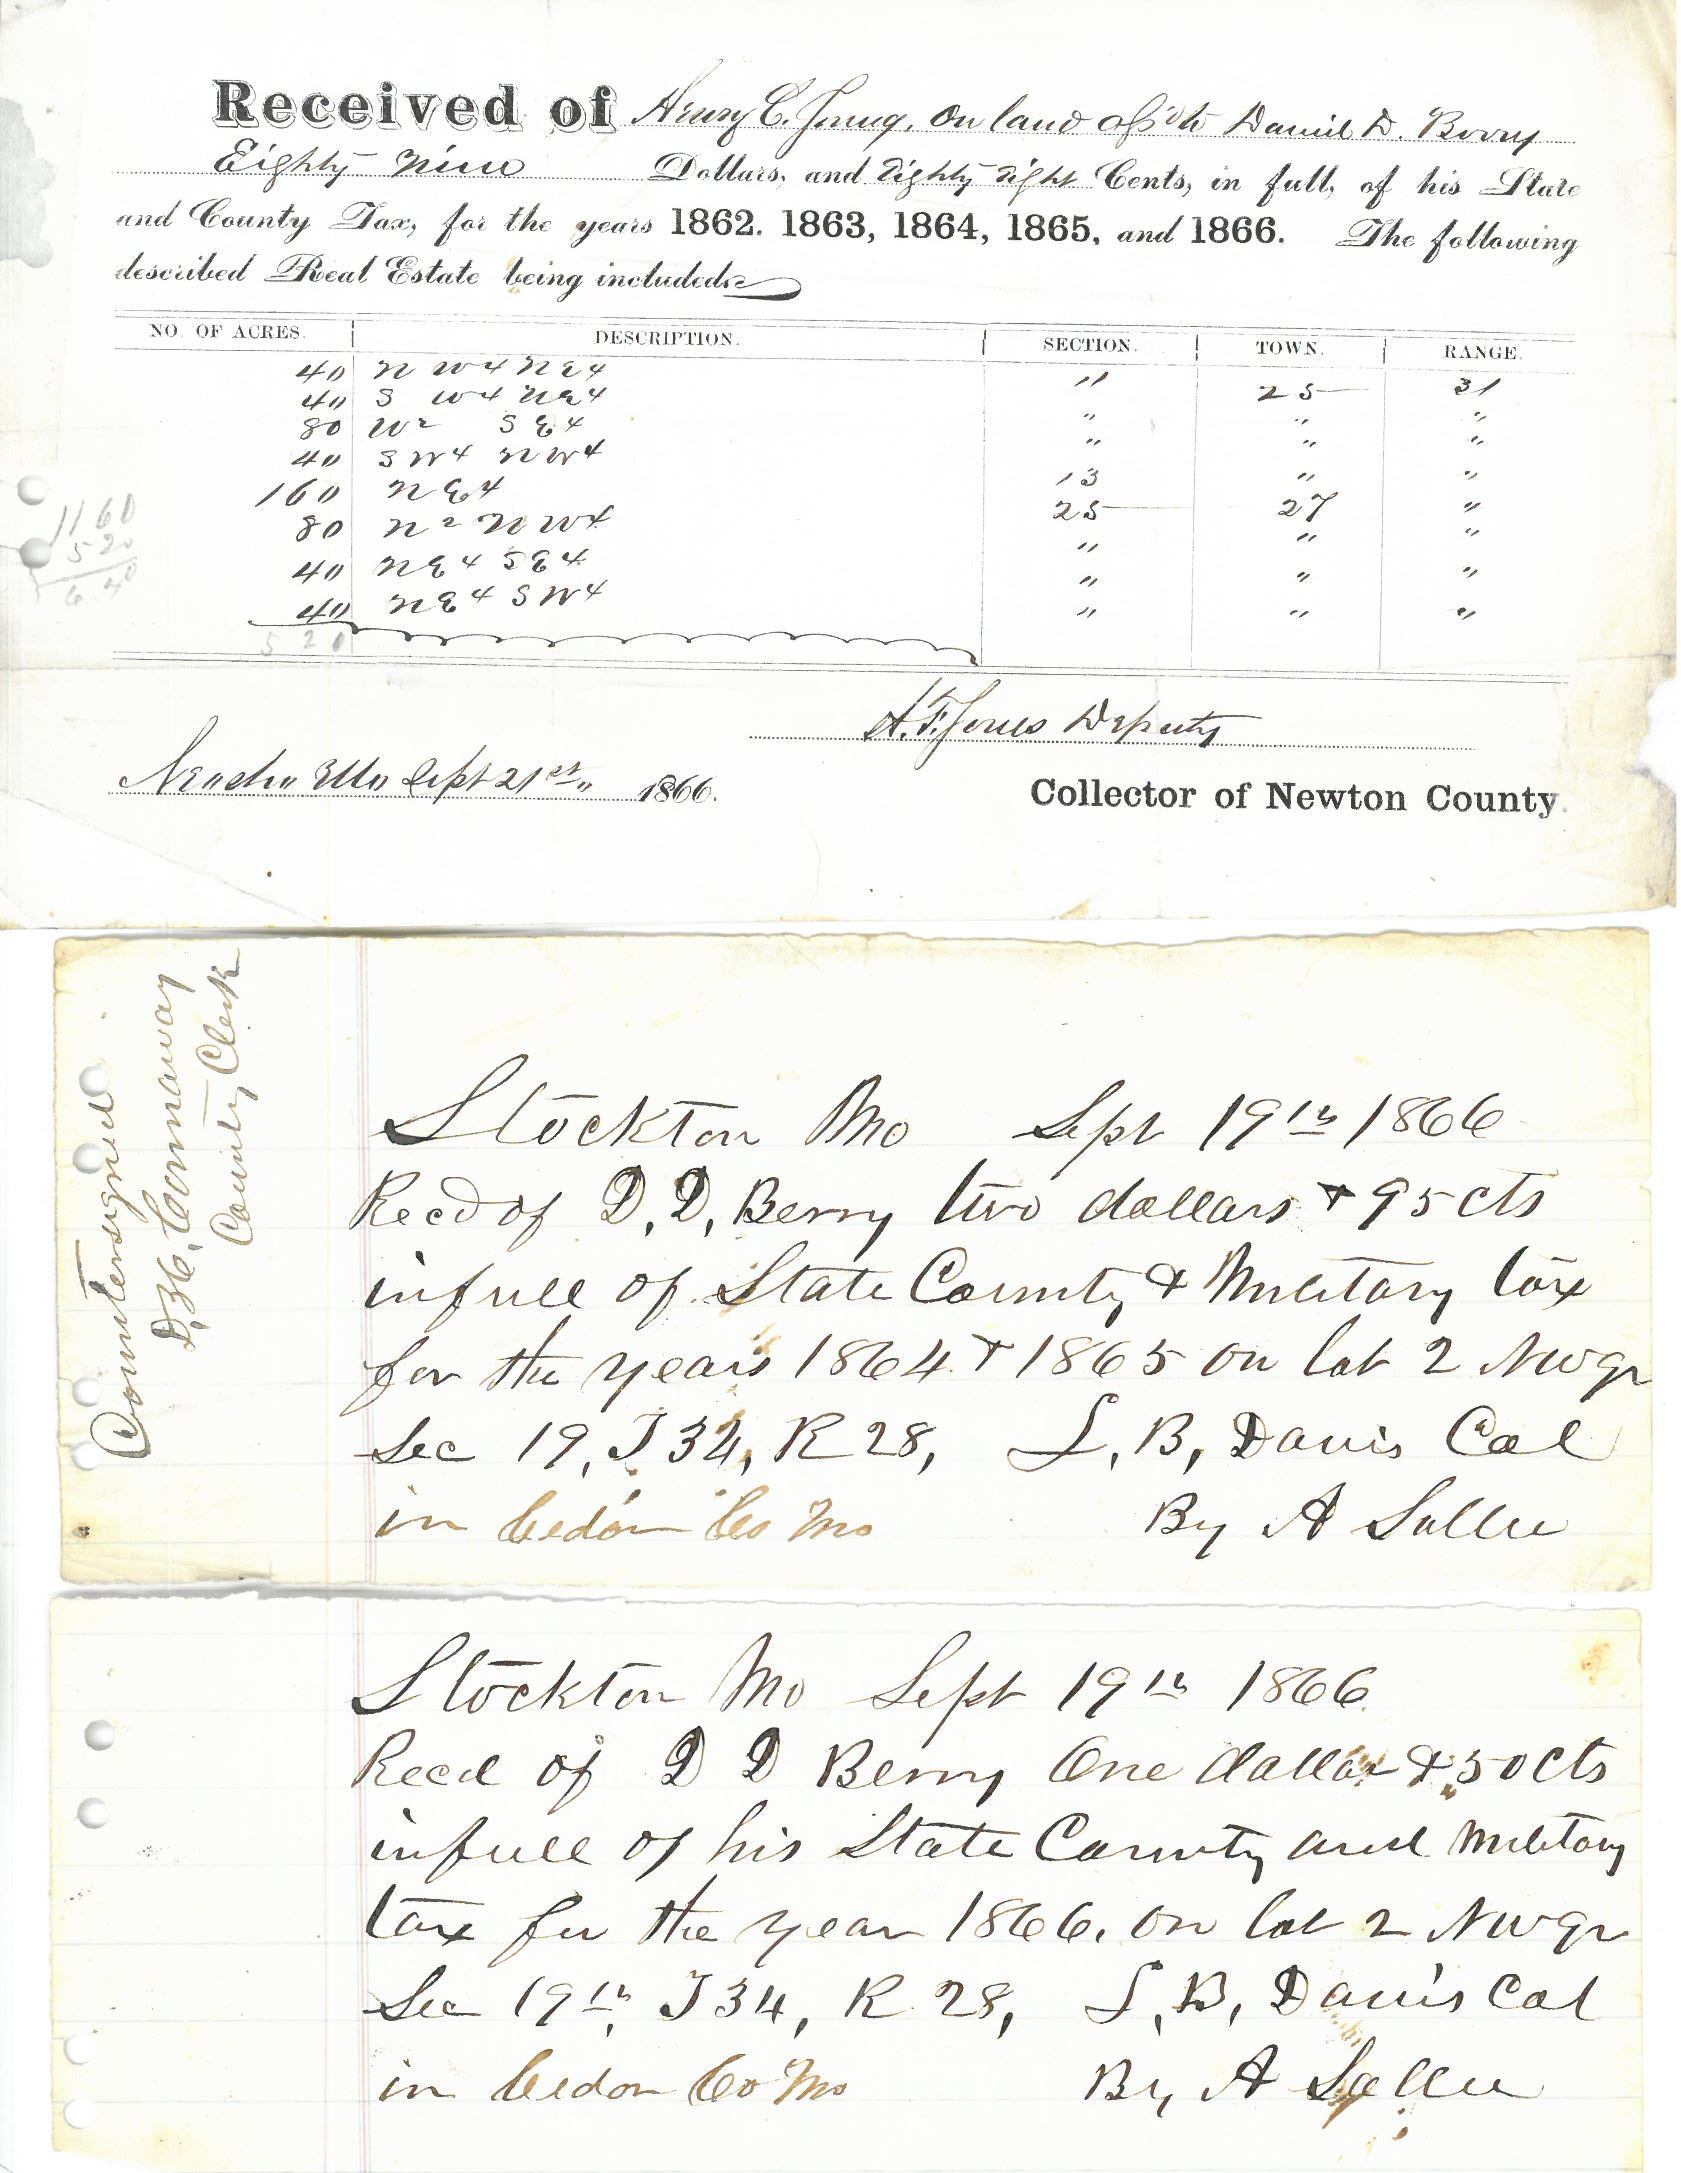 Received of Henry C. Young, on land ass'd to Daniel D. Berry
Eighty Nine Dollars, and Eighty Eight Cents, in full, of his State
and County Tax, for the years 1862. 1863, 1864, 1865, and 1866. The following
described Real Estate being included:
NO. OF ACRES. DESCRIPTION. SECTION. TOWN. RANGE.
40 N W4 N E4 11 25 31
40 S W4 N E4 " " "
80 W2 S E4 " " "
40 S W4 N W4 13 " "
160 N E4 25 27 "
80 N2 N W4 " " "
40 N E4 S E4 " " "
40 N E4 S W4 " " "
520
1160
520
640
A. F. Jones Deputy
Neosho Mo Sept 21st 1866.
Collector of Newton County.
Countersigned
D. H. Connaway
County Clerk
Stockton Mo Sept 19th 1866
Recd of D. D. Berry two dollars & 95 cts
in full of State County & Military tax
for the years 1864 & 1865 on lot 2 NW qr
Sec 19, T 34, R 28, L. B. Davis Col
in Cedar Co Mo By A Sallee
Stockton Mo Sept 19th 1866.
Recd of D D Berry One dollar & 50 cts
in full of his State County and Military
tax for the year 1866. on lot 2 NW qr
Sec 19th, T 34, R 28, L. B. Davis Col
in Cedar Co Mo By A Sallee